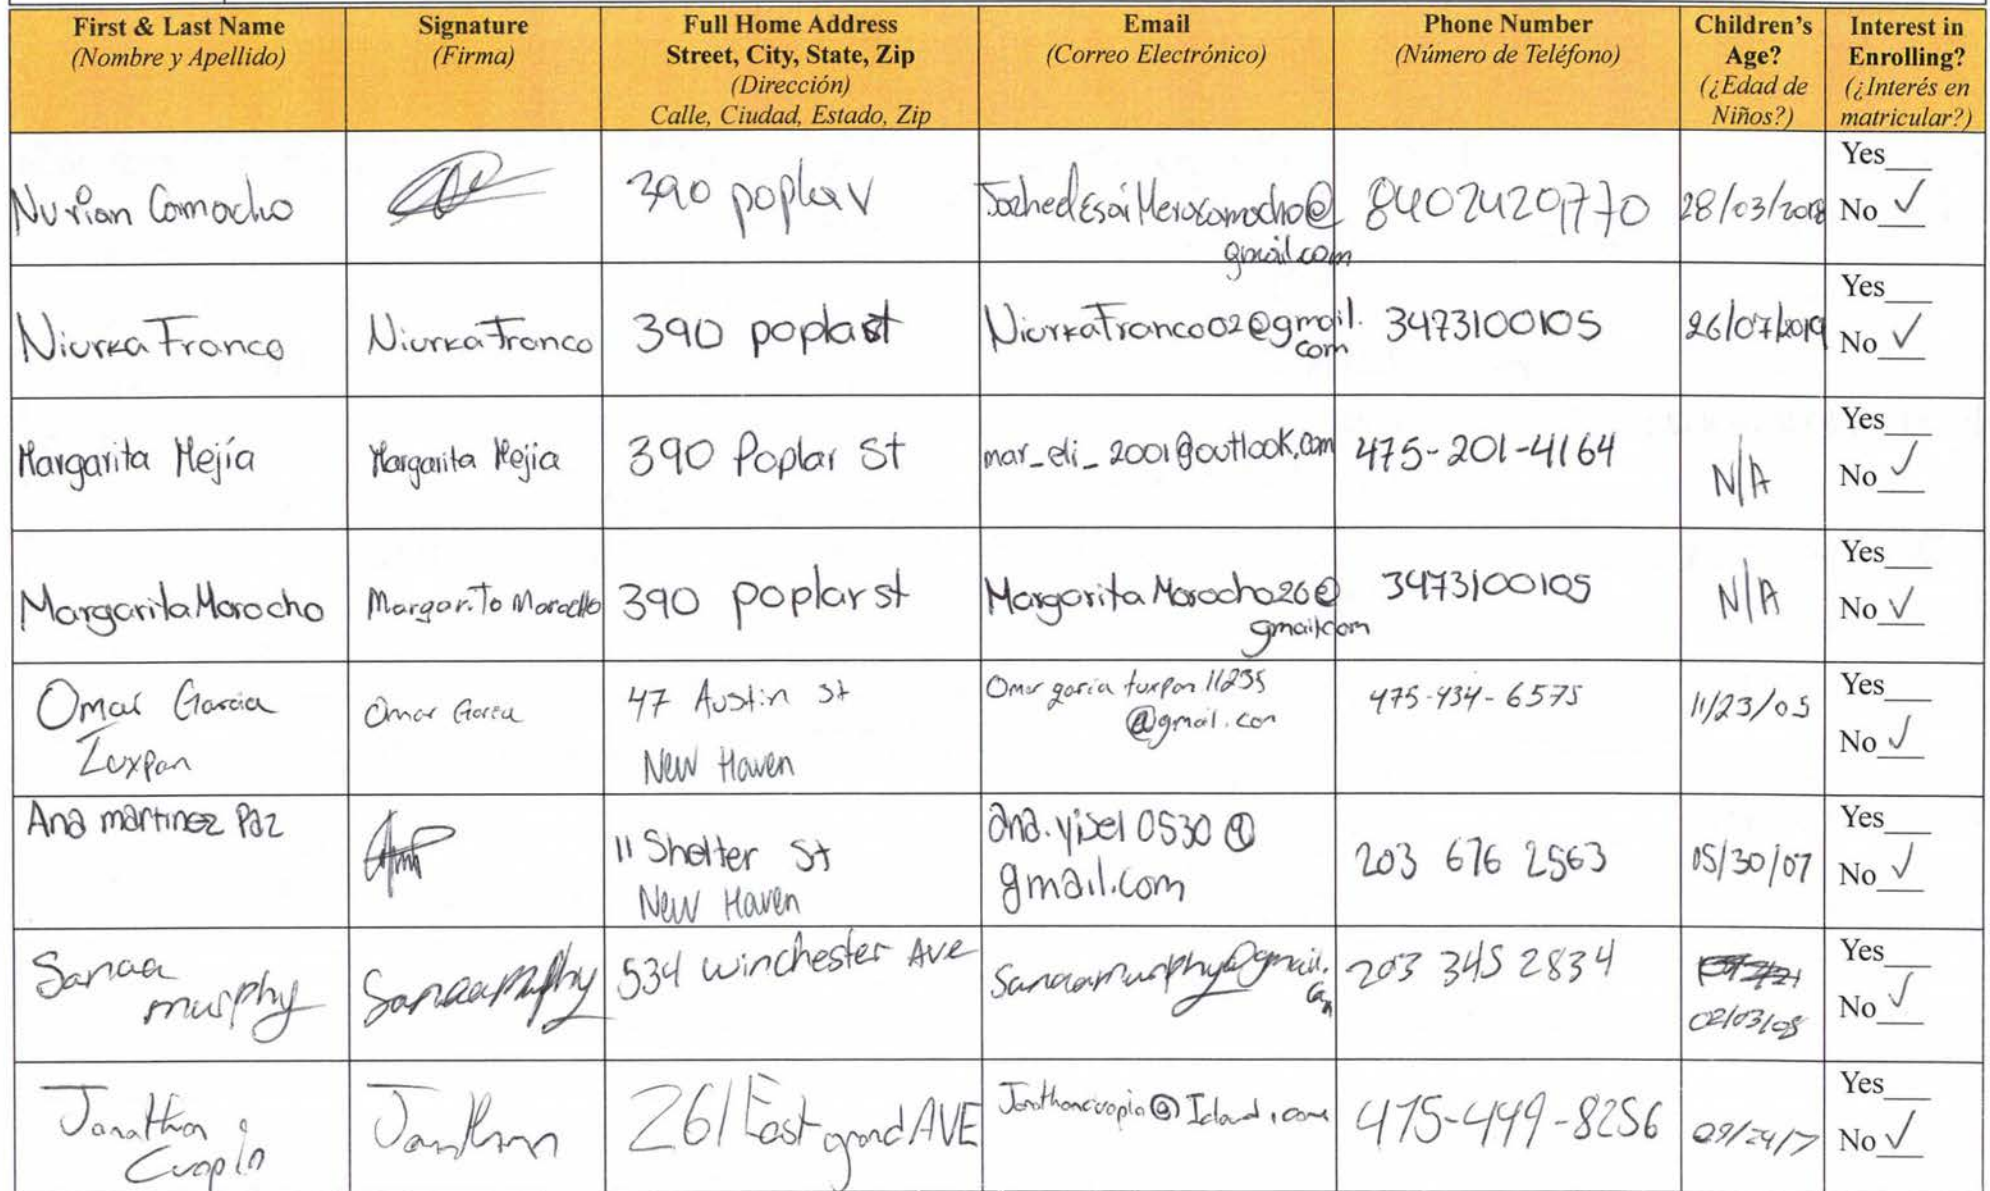 First & Last Name
(Nombre y Apellido)
Signature
(Firma)
Full Home Address
Street, City, State, Zip
(Dirección)
Calle, Ciudad, Estado, Zip
Email
(Correo Electrónico)
Phone Number
(Número de Teléfono)
Children's
Age?
(¿Edad de
Niños?)
Interest in
Enrolling?
(¿Interés en
matricular?)
Nurian Camacho
390 poplav
gmail.com
84024201770
28/03/2018
Yes___
No ✓
Niurka Franco
Niurka Franco
390 poplast
NiurkaFranco02@gmail.
com
3473100105
26/07/2019
Yes___
No ✓
Margarita Mejía
Margarita Mejia
390 Poplar St
mar_eli_2001@outlook.com
475-201-4164
N/A
Yes___
No ✓
Margarita Morocho
Margarita Morocho
390 poplar st
Margarita Morocho26@
gmail.com
3473100105
N/A
Yes___
No ✓
Omar Garcia
Tuxpan
Omar Garcia
47 Austin st
New Haven
Omar garcia tuxpan 11235
@gmail.com
475-434-6575
11/23/05
Yes___
No ✓
Ana martinez Paz
11 Shelter St
New Haven
ana.yisel0530@
gmail.com
203 676 2563
05/30/07
Yes___
No ✓
Sanaa
murphy
Sanaa murphy
534 winchester AVE
Sanaamurphy@gmail.
com
203 345 2834
02/03/08
Yes___
No ✓
Jonathan
Jonathan
261 East grand AVE
475-449-8256
09/24/7
Yes___
No ✓